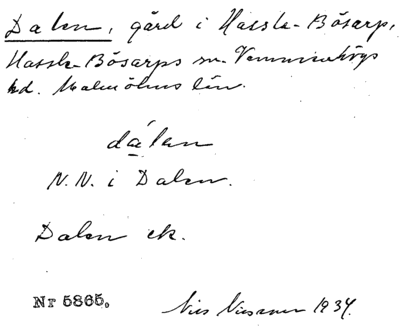 Dalen, gård i Hassle-Bösarp,
Hassle-Bösarps sn. Vemmenhögs
hd. Malmöhus län.
dálen
N.N. i Dalen.
Dalen ek.
Nr 5865.
1934.